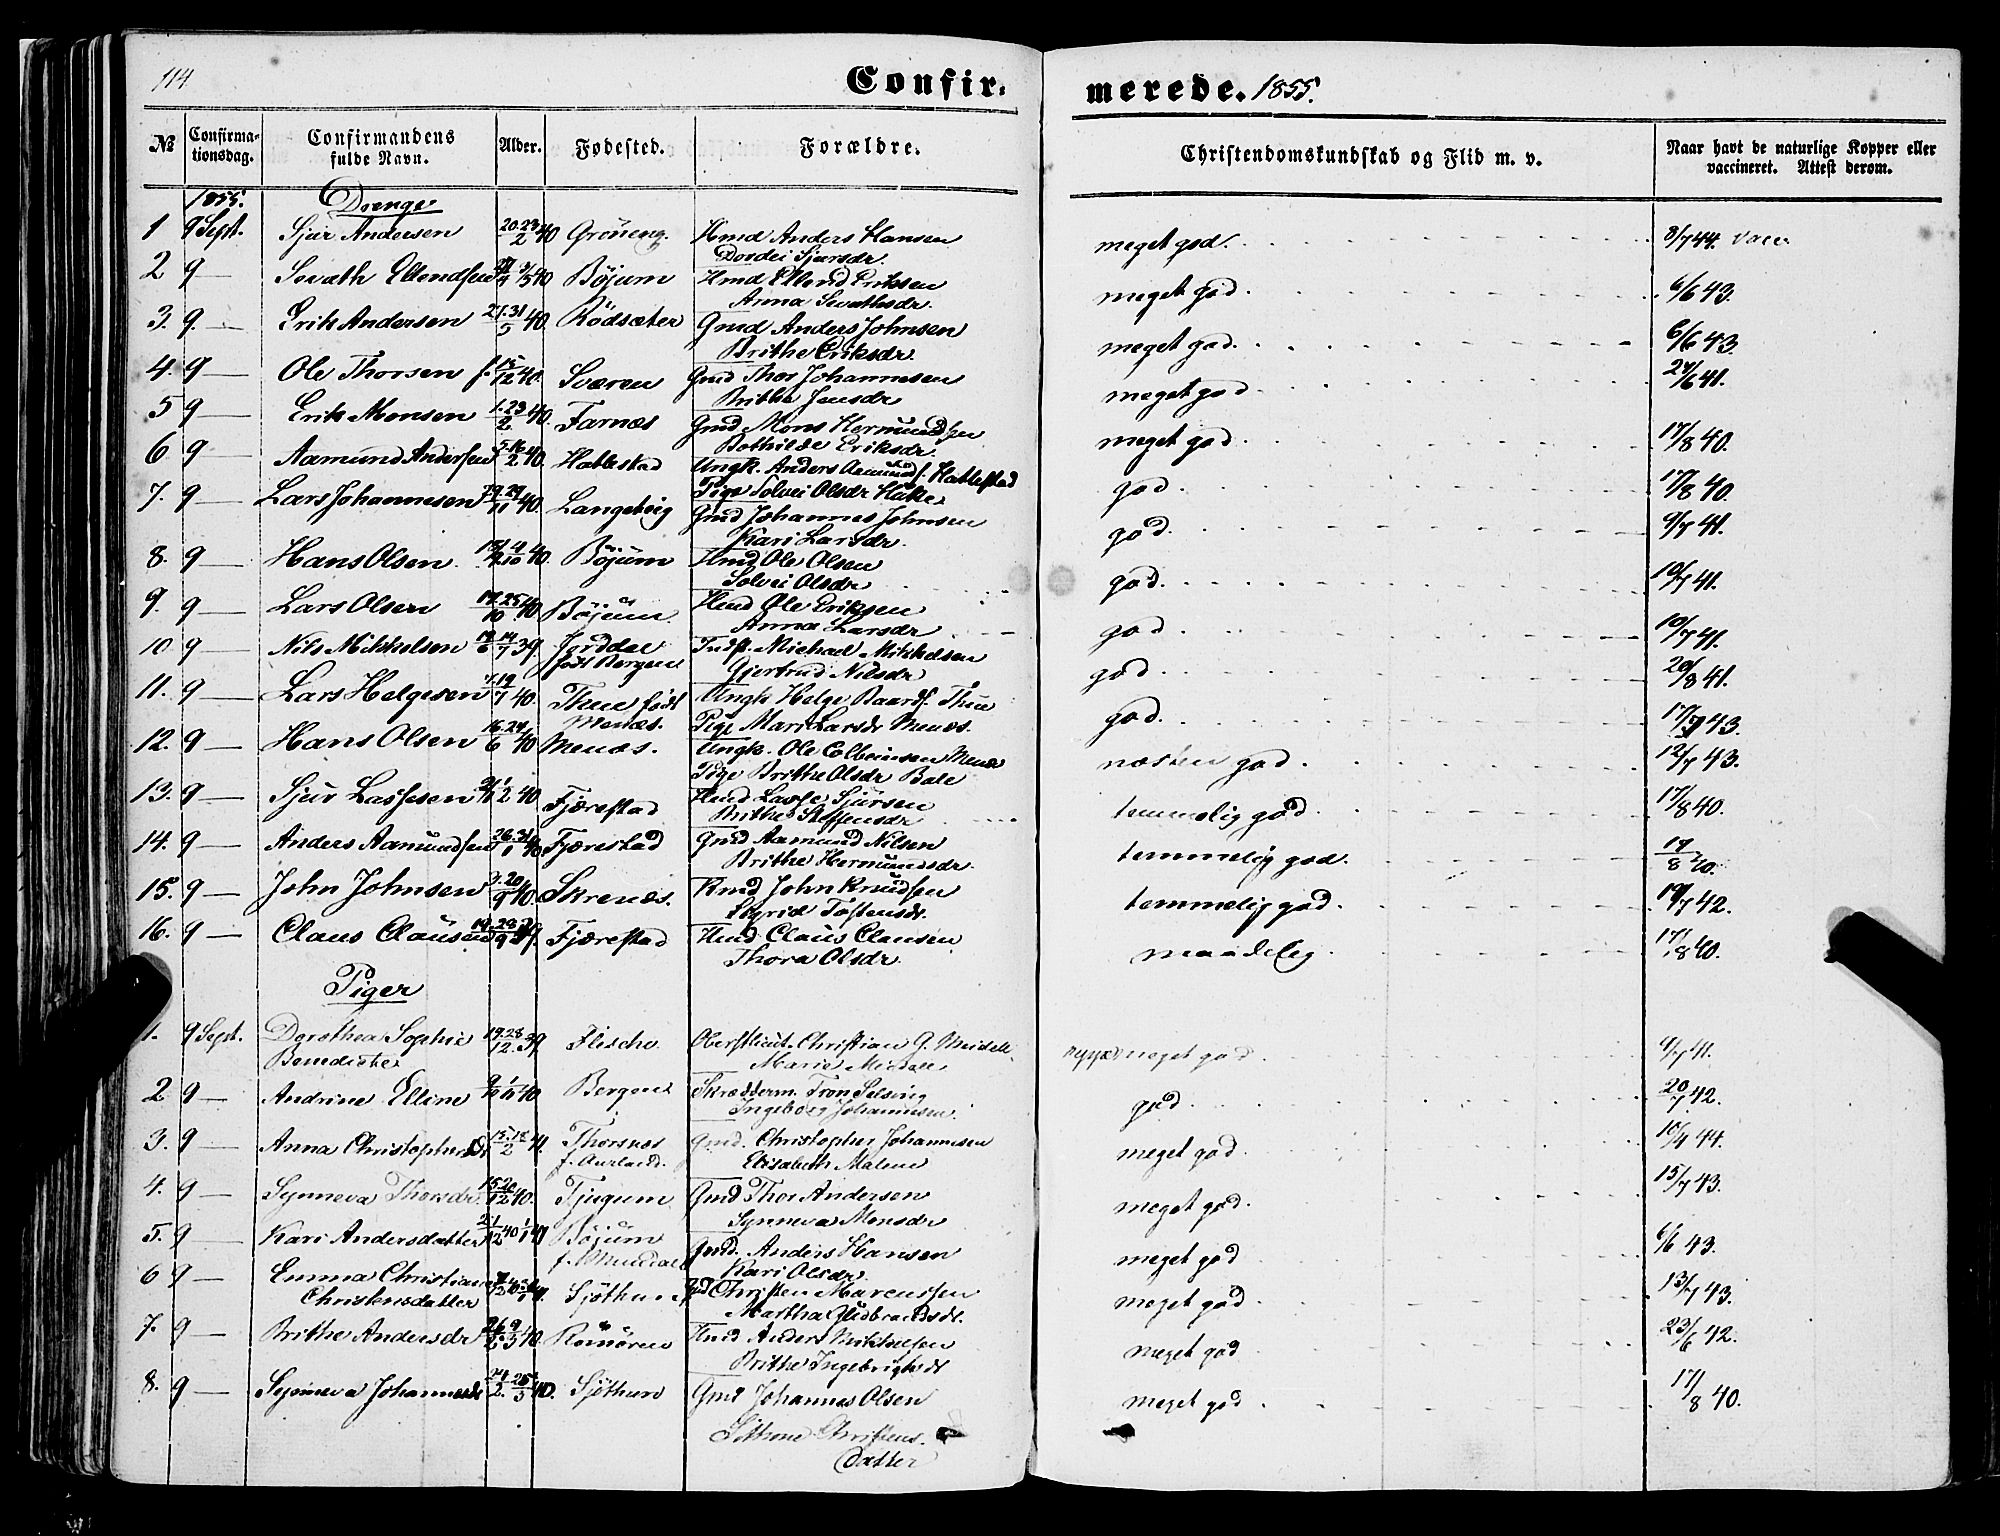 114
Confir-
merede. 1855.
№ Confirma-tionsdag. Confirmandens fulde Navn. Alder. Fødested. Forældre. Christendomskundskab og Flid m. v. Naar havt de naturlige Kopper eller vaccineret. Attest derom.
1855. Drenge
1 9 Sept. Sjur Andersen 20.23/2 40 Gröneng. Hmd Anders Hansen meget god. 8/7 44. vacc
Dordei Sjursdr.
2 9 — Sivath Ellendsen Böjum Hmd Ellend Eriksen meget god. 6/6 43.
Anna Sivathsdr.
3. 9. — Erik Andersen 21.31/5 40. Rödsæter Gmd Anders Johnsen meget god. 6/6 43.
Brithe Eriksdr.
4. 9 — Ole Thorsen f. 15/12 40. Sværen Gmd Thor Johannesen meget god 24/6 41.
Brithe Jensdr.
5 9 — Erik Monsen 1.23/2 40. Farnæs Gmd Mons Hermundsen meget god. 17/8 40.
Bothilde Eriksdr.
6 9 — Aamund Andersen 5.16/2 40. Hatlestad Ungk. Anders Aamunds. Hatlestad god. 17/8 40.
Pige Solvei Olsdr Huke
7. 9 — Lars Johannesen 40. Langeteig Gmd Johannes Johnsen god. 9/7 41.
Kari Larsdr.
8. 9 — Hans Olsen 40. Böjum Hmd Ole Olsen god. 10/7 41.
Solvei Olsdr
9. 9 — Lars Olsen 19.25/10 40 Böjum. Hmd Ole Eriksen god. 10/7 41.
Anna Larsdr
10 9 — Nils Mikkelsen 14/7 39. Jorddal Indst. Michael Mikkelsen god. 20/8 41.
født Bergen Gjertrud Nilsdr
11. 9 — Lars Helgesen 7.19/7 40. Thue født Ungk Helge Baards. Thue god. 17/7 43.
Menæs. Pige Mari Larsdr Menæs.
12. 9 — Hans Olsen 16.24/6 40 Menæs. Ungk. Ole Menæs næsten god. 12/7 43.
Pige Brithe Olsdr Bale
13. 9 — Sjur Lassesen 40 Fjærestad Hmd Lasse Sjursen temmelig god. 17/8 40.
Brithe Steffensdr.
14. 9 — Anders Aamundsen 26.31/1 40 Fjærestad Gmd Aamund Nilsen temmelig god. 17/8 40.
Brithe Hermundsdr.
15. 9 — John Johnsen 3.20/9 40. Skrenæs. Kmd John Knudsen temmelig god. 19/7 42.
Sigrid Tostensdr.
16. 9 — Claus Clausen 39. Fjærestad Hmd Claus Clausen maadelig. 17/8 40.
Thora Olsdr.
Piger
1. 9 Sept. Dorothea Sophie 19.28/12 39 Flesche Oberstlieut. Christian G. Meidell meget god. 9/7 41.
Benedicte Marie Meidell
2 9 — Andrine Elline 40. Bergen Skrædderm. Tron Selsing god. 20/7 42.
Ingeborg Johannesen.
3. 9 — Anna Christophersdr 15.18/2 41. Thorsnes Gmd. Christopher Johannesen meget god. 10/4 44.
f. Aurland. Elisabeth Malene
4. 9 — Synneva Thorsdr. 15.20/12 40. Tjugum Gmd Thor Andersen meget god. 15/7 43.
Synneva Monsdr
5. 9 — Kari Andersdatter Böjum Gmd. Anders Hansen meget god 6/6 43.
f. Mundal Kari Olsdr.
6 9 — Emma Christiane Sjöthun Christen Marcussen meget god 13/7 43.
Christensdatter Martha Gudbrandsdr.
7. 9 — Brithe Andersdr 40. Romören Hmd Anders Mikkelsen meget god 23/6 42.
Brithe Ingebrigtsdr
8. 9 — Synneva Johannesdr 40. Sjöthun Gmd Johannes Olsen meget god. 17/8 40.
Christens-
datter